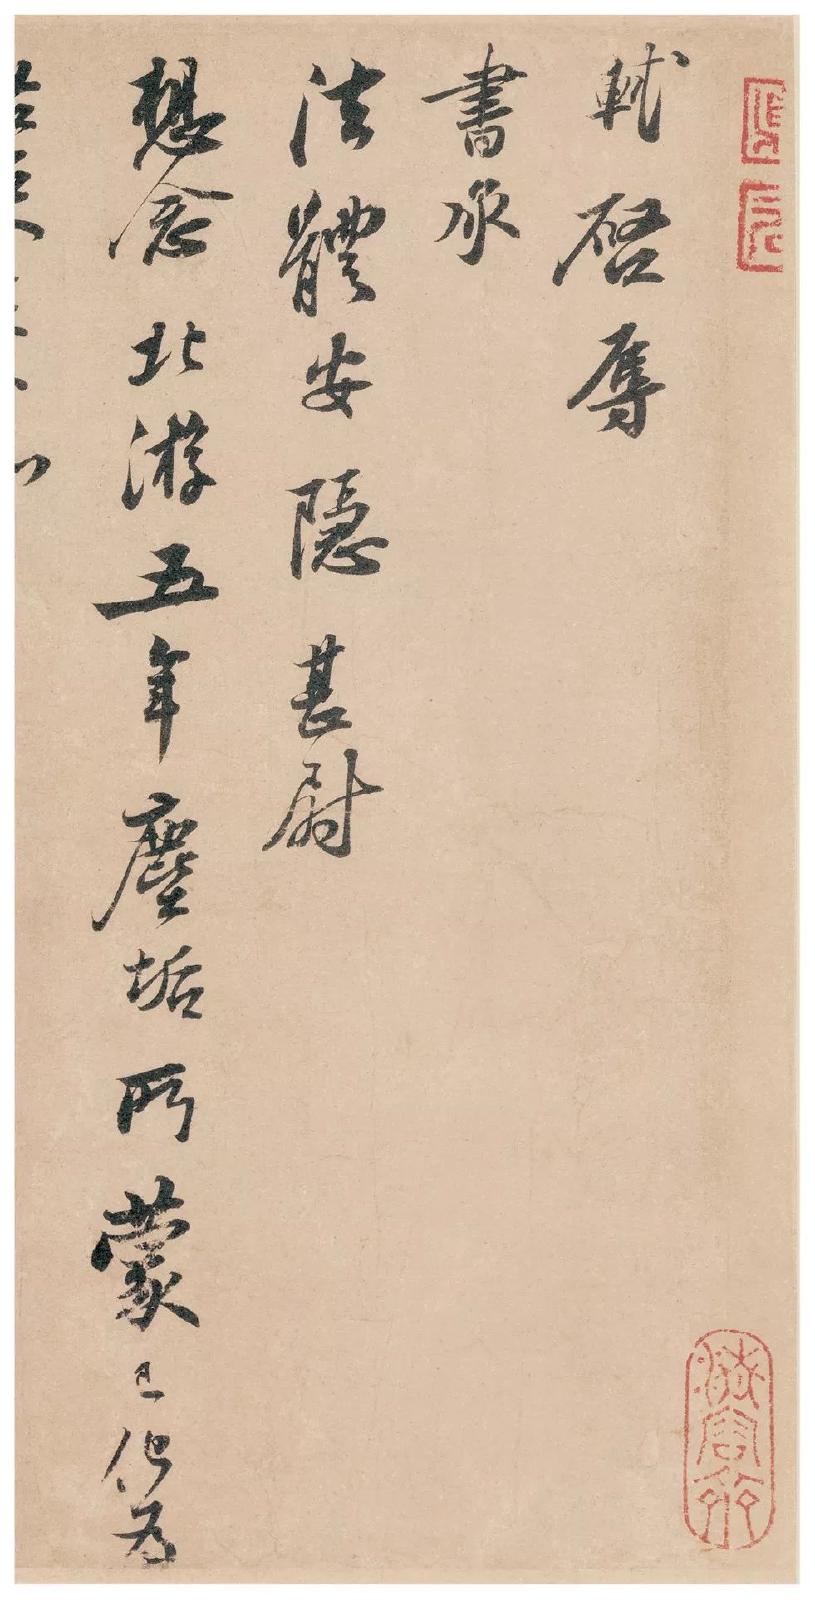 軾啓辱
書承
法體安隱甚尉
想念北游五年塵垢所蒙已化爲